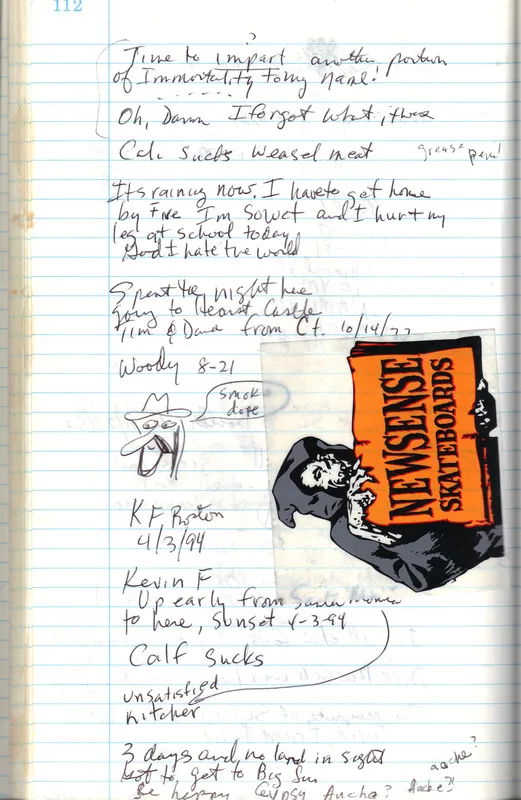 112
?
Time to impart another portion
of Immortality to my name!
Oh, Damn I forgot what, twas
Calif sucks weasel meat
grease pencil
Its raining now. I have to get home
by Five I'm so wet and I hurt my
leg at school today
God I hate the world
Spent the night here
going to Hearst Castle
Tim & Dave from Ct. 10/14/77
Woody 8-21
smoke
dope
NEWSENSE
SKATEBOARDS
KF Boston
4/3/94
Kevin F
Up early from Santa Monica
to here, sunset 4-3-94
Calf sucks
unsatisfied
Kitcher
3 days and no land in sight
got to get to Big Sur
Be happy Gypsy Auche? Auche?!
aache?